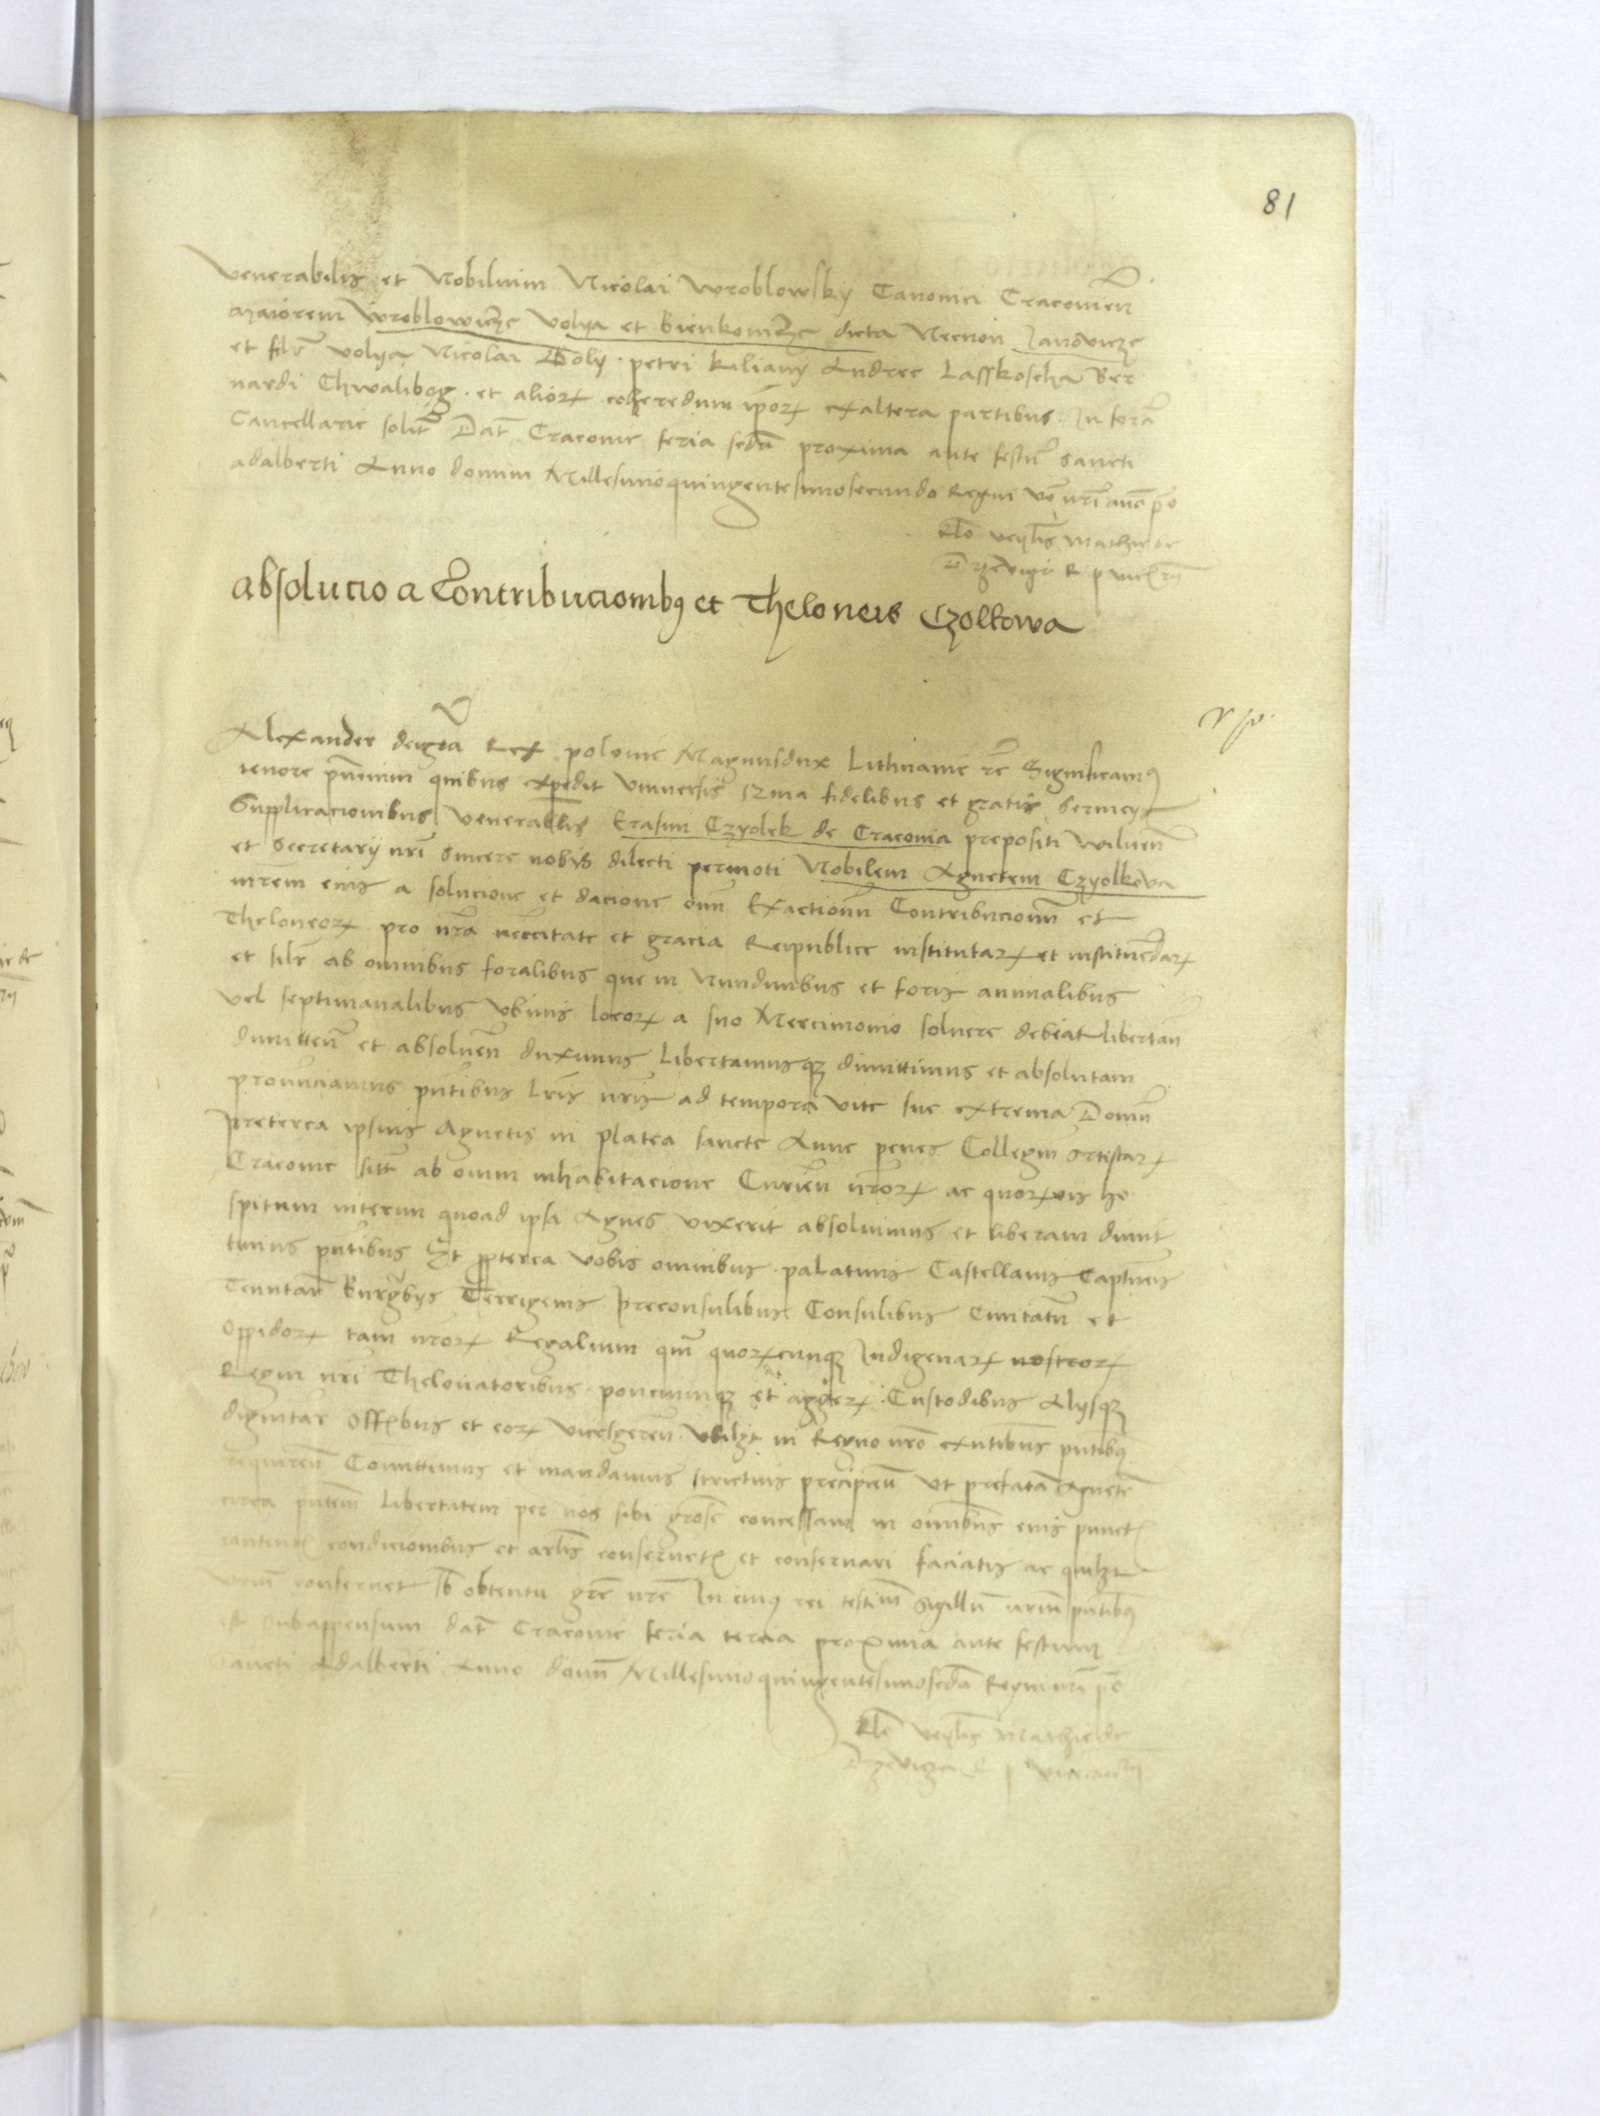 81
Venerabilis et Nobilium Nicolai Wroblowsky Canonici Cracovien
maiorem Wroblowicze Volya et Bienkowicze dicta Necnon Janowicze
et Volya Nicolai Goly petri Kiliany Andree Lasskoscha Ber
nardi Chwalibog et aliorꝝ coheredum ipsorꝝ ex altera partibus In forā
Cancellarie solit̄ Dat̄ Cracovie feria secdā proxima ante festū Sancti
Adalberti Anno domini Millesimoquingentesimosecundo Regni
Rlo Mathie de
Drzewicza R p
Absolucio a Contribucionibꝰ et Theloneis Czolkowa
Alexander dei grā Rex polonie Magnusdux Lithuanie rc̄ Significamꝰ
tenore pn̄cium quibus expedit Universis fidelibus et gratis
Supplicacionibus Venerabilis Erasmi Czyolek de Cracovia prepositi Wilnen̄
et Secretarij nrī sincere nobis dilecti permoti Nobilem Agnetem Czyolkova
mrēm eius a solucione et dacione om̄ Exactionū Contribucionū et
Theloneorꝝ pro nrā nec̄citate et gracia Reipublice institutarꝝ et instituendarꝝ
et silr̄ ab omnibus foralibus que in Nundinibus et foris annualibus
vel septimanalibus Ubivis locorꝝ a suo Mercimonio solvere debeat libertan
dimitten̄ et absoluen̄ duximus Libertamusqꝫ dimittimus et absolutam
pronunciamus pn̄tibus Lrīs nrīs ad tempora vite sue extrema Domū
preterea ipsius Agnetis in platea sancte Anne penes Collegiū Artistarꝝ
Cracovie sitā ab omni inhabitacione Curien̄ nrōrꝝ ac quorꝝvis ho
spitum interim quoad ipsa Agnes vixerit absolvimus et liberam dimit
timus pn̄tibus Et propterea Vobis omnibus palatinis Castellanis Capitaneis
Tenutar̄ Burgrabijs Terrigenis preconsulibus Consulibus Civitatū et
Oppidorꝝ tam nrōrꝝ Regalium qm̄ quorꝝcunqꝫ Indigenarꝝ nostrorꝝ
Regni nrī Thelonatoribus ponciumqꝫ et aggerꝝ Custodibus Alijsqꝫ
dignitar̄ Offibus et eorꝝ vicesgeren̄ ubilꝫ in Regno nrō exn̄tibus pn̄tibꝰ
requiren̄ Comittimus et mandamus strictius precipien̄ Ut prefatam Agnetē
circa pn̄tem libertatem per nos sibi grōse concessam in omnibus eius punct̄
condicionibus et arlīs conservet̄ et conservari faciatis ac quilꝫ
vrūm conservet obtentu grē nrē In cuius rei testim̄ Sigillū pn̄tibꝰ
est subappensum dat̄ Cracovie feria tercia proxima ante festum
Sancti Adalberti Anno domī Millesimoquingentesimosecdō Regni nrī
Rlo Mathie de
Drzewicza R p